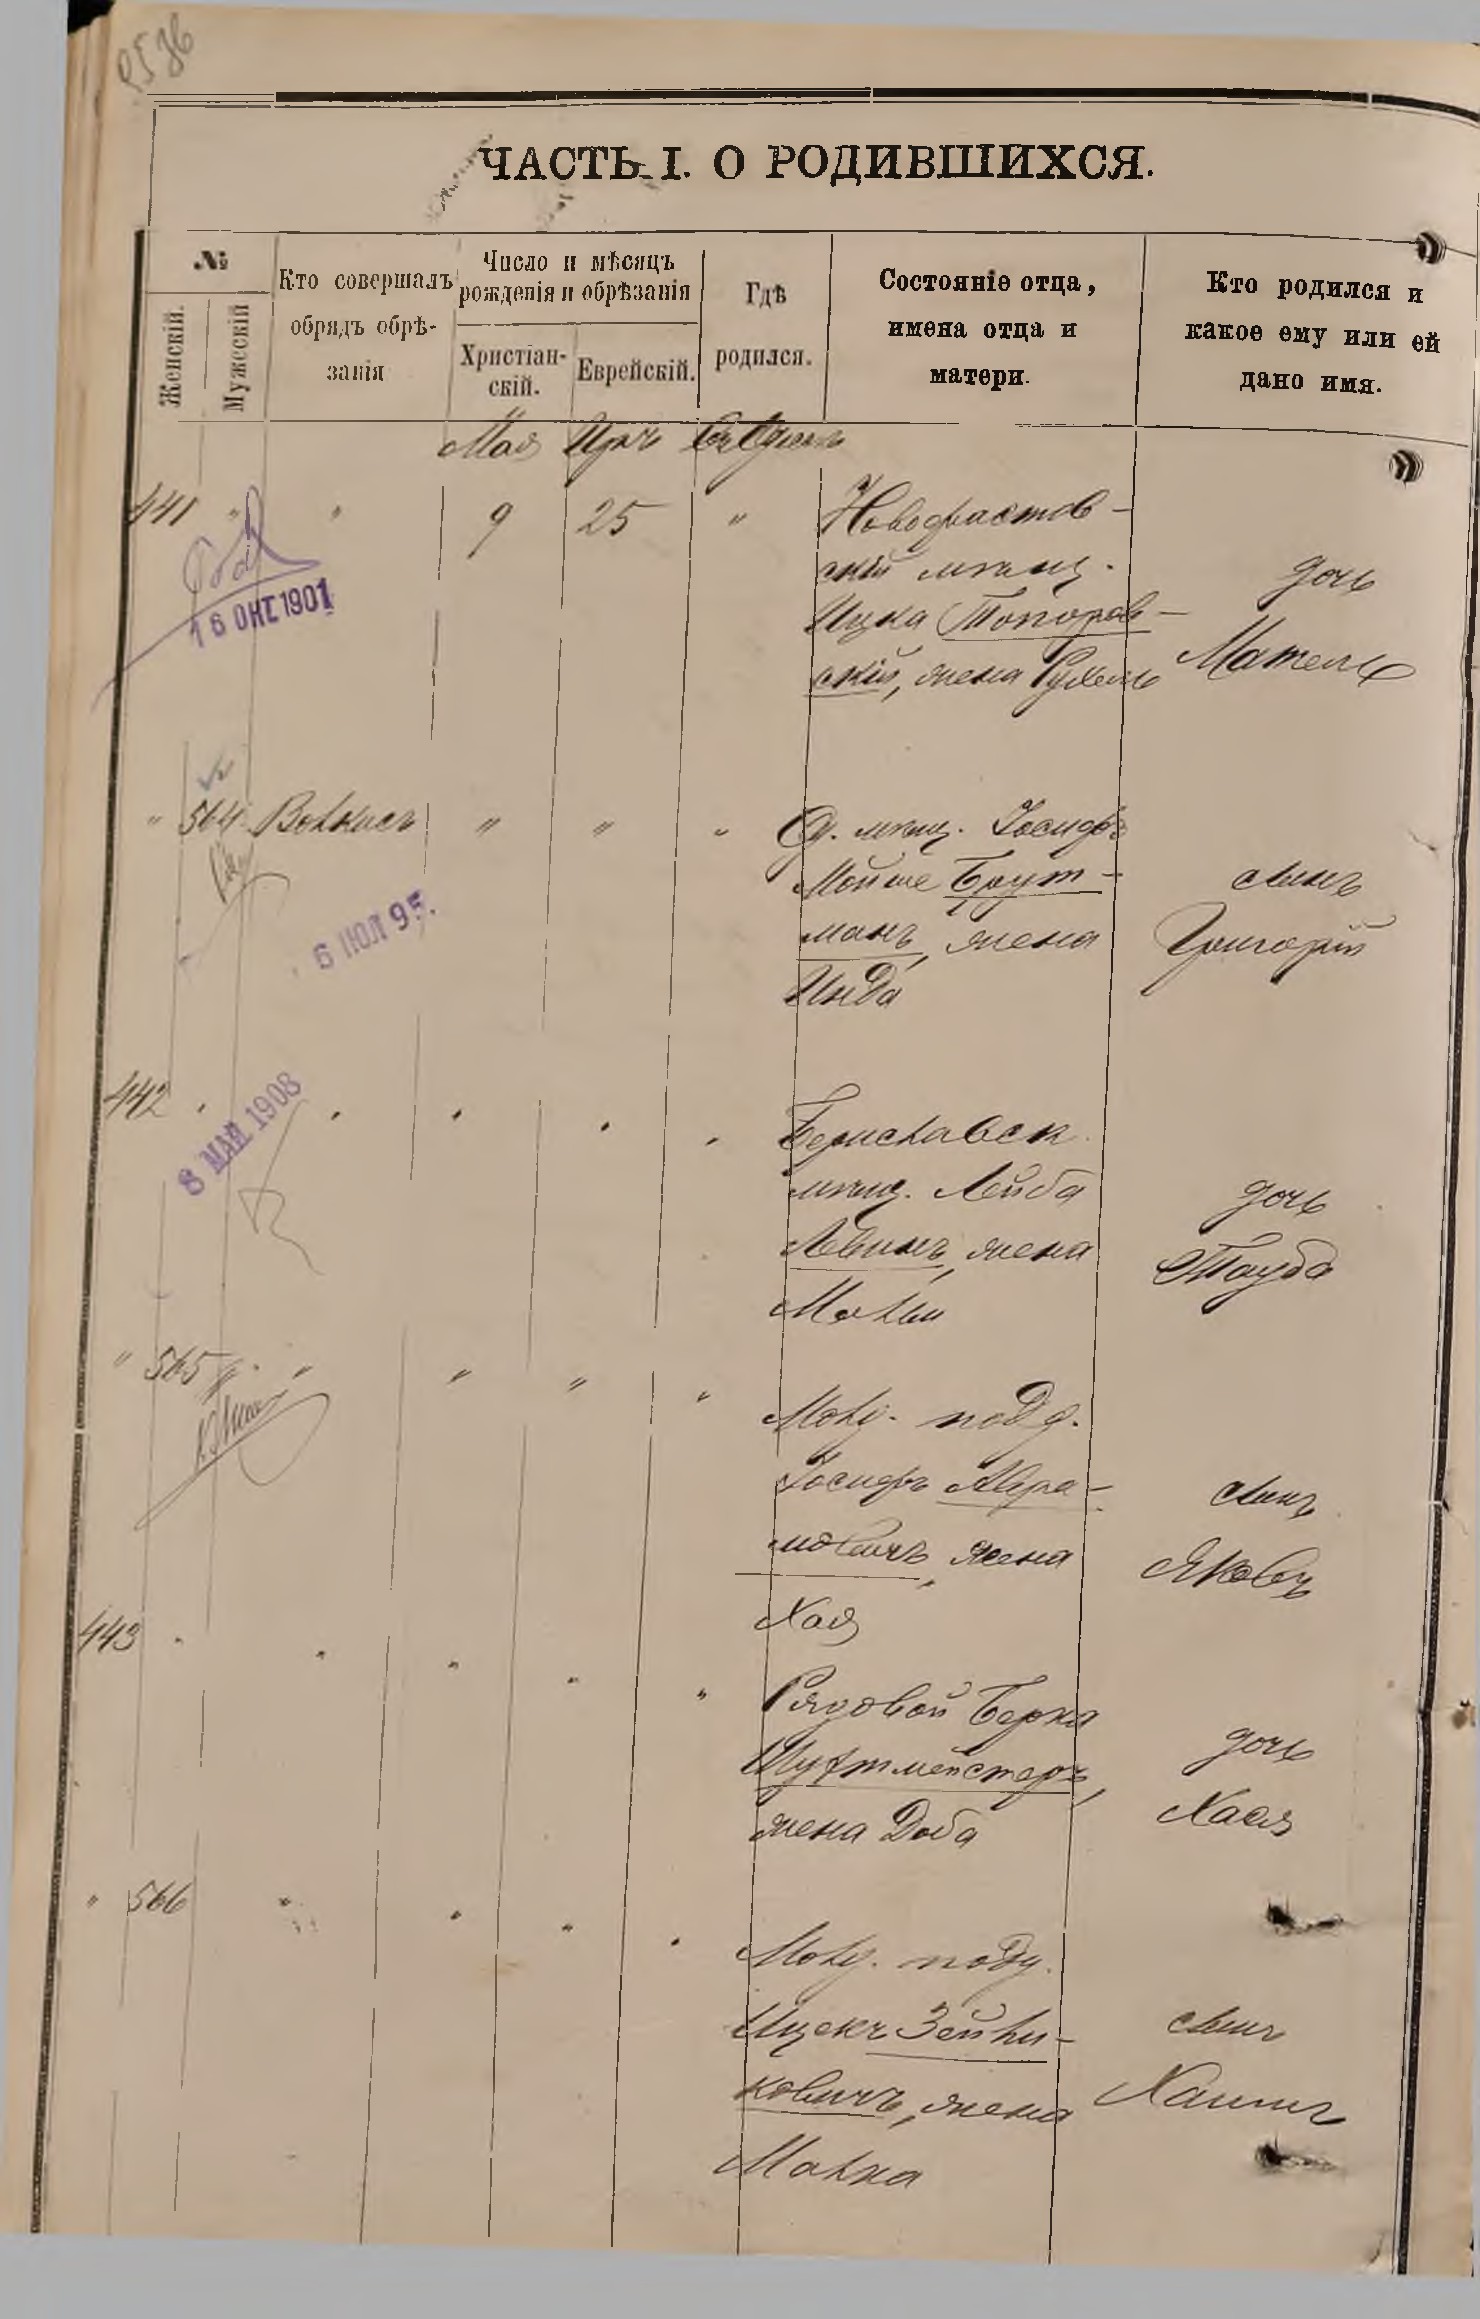 ЧАСТЬ I. О РОДИВШИХСЯ.
№
Женскій.
Мужескій
Кто совершалъ
обрядъ обрѣ-
занія
Число и мѣсяцъ
рожденія и обрѣзанія
Христіан-
скій.
Еврейскій.
Гдѣ
родился.
Состояніе отца,
имена отца и
матери.
Кто родился и
какое ему или ей
дано имя.
Мая Иръ
441 " " 9 25 "
Новофастов-
скій мѣщ.
Ицка Топоров-
скій, жена Рухель
дочь
Матель
16 ОКТ 1901
" 564 Вольнисъ " " "
Од. мѣщ. Іосифъ
Мойше Брут-
манъ, жена
Инда
сынъ
Григорій
6 ІЮЛ 95.
442 " " " " "
Бериславск.
мѣщ. Лейба
Левинъ, жена
Малы
дочь
Тауба
8 МАЙ 1908
" 565 " " " "
Молд. подд.
Іосифъ Авра-
мовичъ, жена
Хая
сынъ
Яковъ
443 " " " " "
Рядовой Берка
Шухтмейстеръ,
жена Доба
дочь
Хася
" 566 " " " "
Молд. подд.
Ицекъ Зейли-
ковичъ, жена
Малка
сынъ
Хаимъ